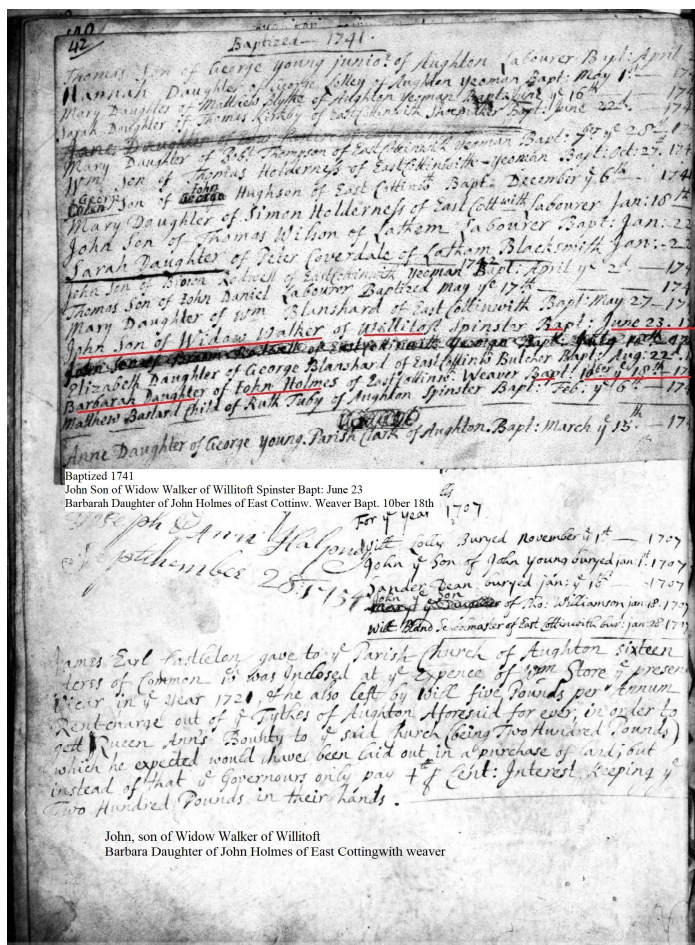 42
Baptized — 1741.
Thomas Son of George young junior of Aughton Labourer Bapt: April
Hannah Daughter of George Lolley of Aughton yeoman Bapt: May 1st — 174
Mary Daughter of Matthew Blythe of Aughton yeoman Bapt: June ye 16th — 174
Sarah Daughter of Thomas Kirkby of East Cottinwith Bapt: June 22d. — 174
Jane Daughter of
Mary Daughter of Robt Thompson of East Cottinwith yeoman Bapt. 7ber ye 28th 17
Wm. Son of Thomas Holderness of East Cottinwith - yeoman Bapt: Oct: 27. 174
George Son of John Hughson of East Cottinwth Bapt: December ye 6th 174
Mary Daughter of Simon Holderness of East Cottwith Labourer Jan: 18th 17
John Son of Thomas Wilson of Lathem Labourer Bapt: Jan: 22
Sarah Daughter of Peter Coverdale of Lathom Blacksmith Jan: 2
1742
John Son of Brown Rodwell of East Cottinwith yeoman Bapt: April ye 2d — 174
Thomas Son of John Daniel Labourer Baptized May ye 17th — 174
Mary Daughter of Wm Blanshard of East Cottinwith Bapt: May 27 — 17
John Son of Widow Walker of Willitoft Spinster Bapt: June 23 17
Elizabeth Daughter of George Blanshard of East Cottinwth Butcher Bapt: Aug: 22d.
Barbarah Daughter of John Holmes of East Cottinwt. Weaver Bapt. 10ber ye 18th 17
Matthew Bastard Child of Ruth Tuby of Aughton Spinster Bapt: Feb. ye 16th — 17
Anne Daughter of George young. Parish Clark of Aughton. Bapt: March ye 13th — 174
Baptized 1741
John Son of Widow Walker of Willitoft Spinster Bapt: June 23
Barbarah Daughter of John Holmes of East Cottinw. Weaver Bapt. 10ber 18th
For ye year 1707
Joseph & Ann
Septhember 28: 1734
Will Lolly Buryed November ye 1st — 1707
John ye Son of John young buryed jan: 1707
Sander Dean buryed jan: ye 16th — 1707
John ye Son of Tho: Williamson jan 18: 1707
Will Bland Scoolmaster of East Cottenwith bur: jan 28: 1707
James Earl Castleton gave to ye Parish Church of Aughton sixteen
Acres of Common it was Inclosed at ye Expence of Wm Store ye presen
Vicar in ye year 1721, & he also left by Will five Pounds per Annum
Rent-charge out of ye Tythes of Aughton Aforesaid for ever, in order to
gett Queen Ann's Bounty to ye said Church (being Two Hundred Pounds)
which he expected would have been laid out in a purchase of Land; but
instead of that ye Governours only pay 4 Cent: Interest, keeping ye
Two Hundred Pounds in their hands.
John, son of Widow Walker of Willitoft
Barbara Daughter of John Holmes of East Cottingwith weaver